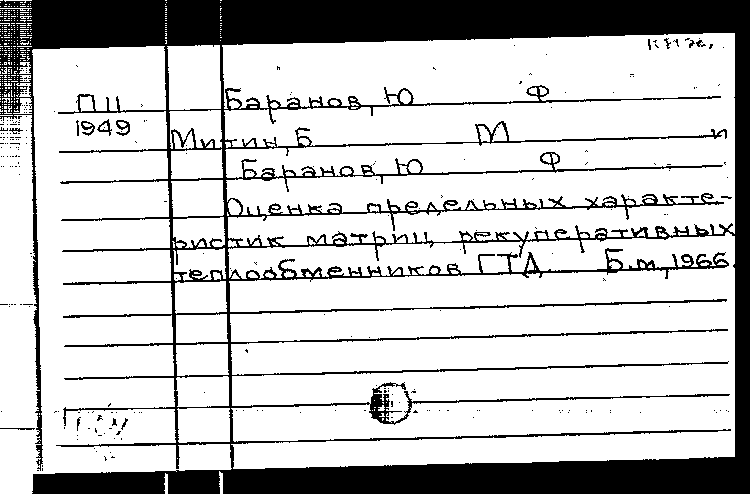 П11 Баранов, Ю Ф
1949
Митин, Б М и
Баранов, Ю Ф
Оценка предельных характе-
ристик матриц рекуперативных
теплообменников ГТД Б.м, 1966.